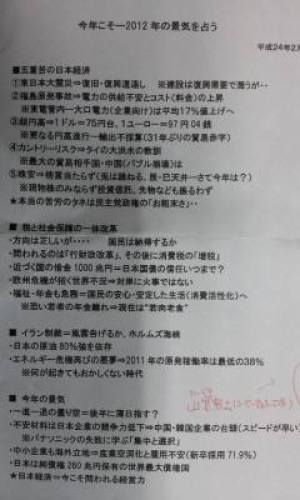 今年こそー2012 年の景気を占う
平成24年2月
■五重苦の日本経済
①東日本大震災⇒復旧・復興道遠し　※建設は復興需要で潤うが‥
②福島原発事故⇒電力の供給不安とコスト(料金)の上昇
※東電管内ー大口電力(企業向け)は平均17%値上げへ
③超円高⇒1ドル=75円台、1ユーロー=97円04銭
※更なる円高進行ー輸出不採算(31年ぶりの貿易赤字)
④カントリーリスク⇒タイの大洪水の教訓
※最大の貿易相手国・中国(バブル崩壊)は
⑤株安⇒格言当たらず(兎は跳ねる、辰・巳天井ーさて今年は?)
※現物株のみならず投資信託、先物なども振るわず
★本当の苦労のタネは民主党政権の「お粗末さ」‥
■ 税と社会保障の一体改革
・方向は正しいが‥‥　国民は納得するか
・問われるのは「行財政改革」、その後に消費税の「増税」
・近づく国の借金 1000 兆円⇒日本国債の信任いつまで?
・欧州危機が招く世界不況⇒対岸に火事ではない
・福祉・年金も急務=国民の安心・安定した生活(消費活性化)へ
※恐い若者の年金離れ⇒現在は"若肉老食"
■ イラン制裁=風雲告げるか、ホルムズ海峡
・日本の原油 80%強を依存
・エネルギー危機再びの悪夢⇒2011 年の原発稼働率は最低の38%
※何が起きてもおかしくない時代
■ 今年の景気
・一進一退の曇り空=後半に薄日指す?
・不安材料は日本企業の競争力低下⇒中国・韓国企業の台頭(スピードが早い)
※パナソニックの失敗に学ぶ「集中と選択」
・中小企業も海外立地⇒産業空洞化と雇用不安(新卒採用 71.9%)
・日本は純債権 260 兆円保有の世界最大債権国
★日本経済⇒今こそ問われる経営力